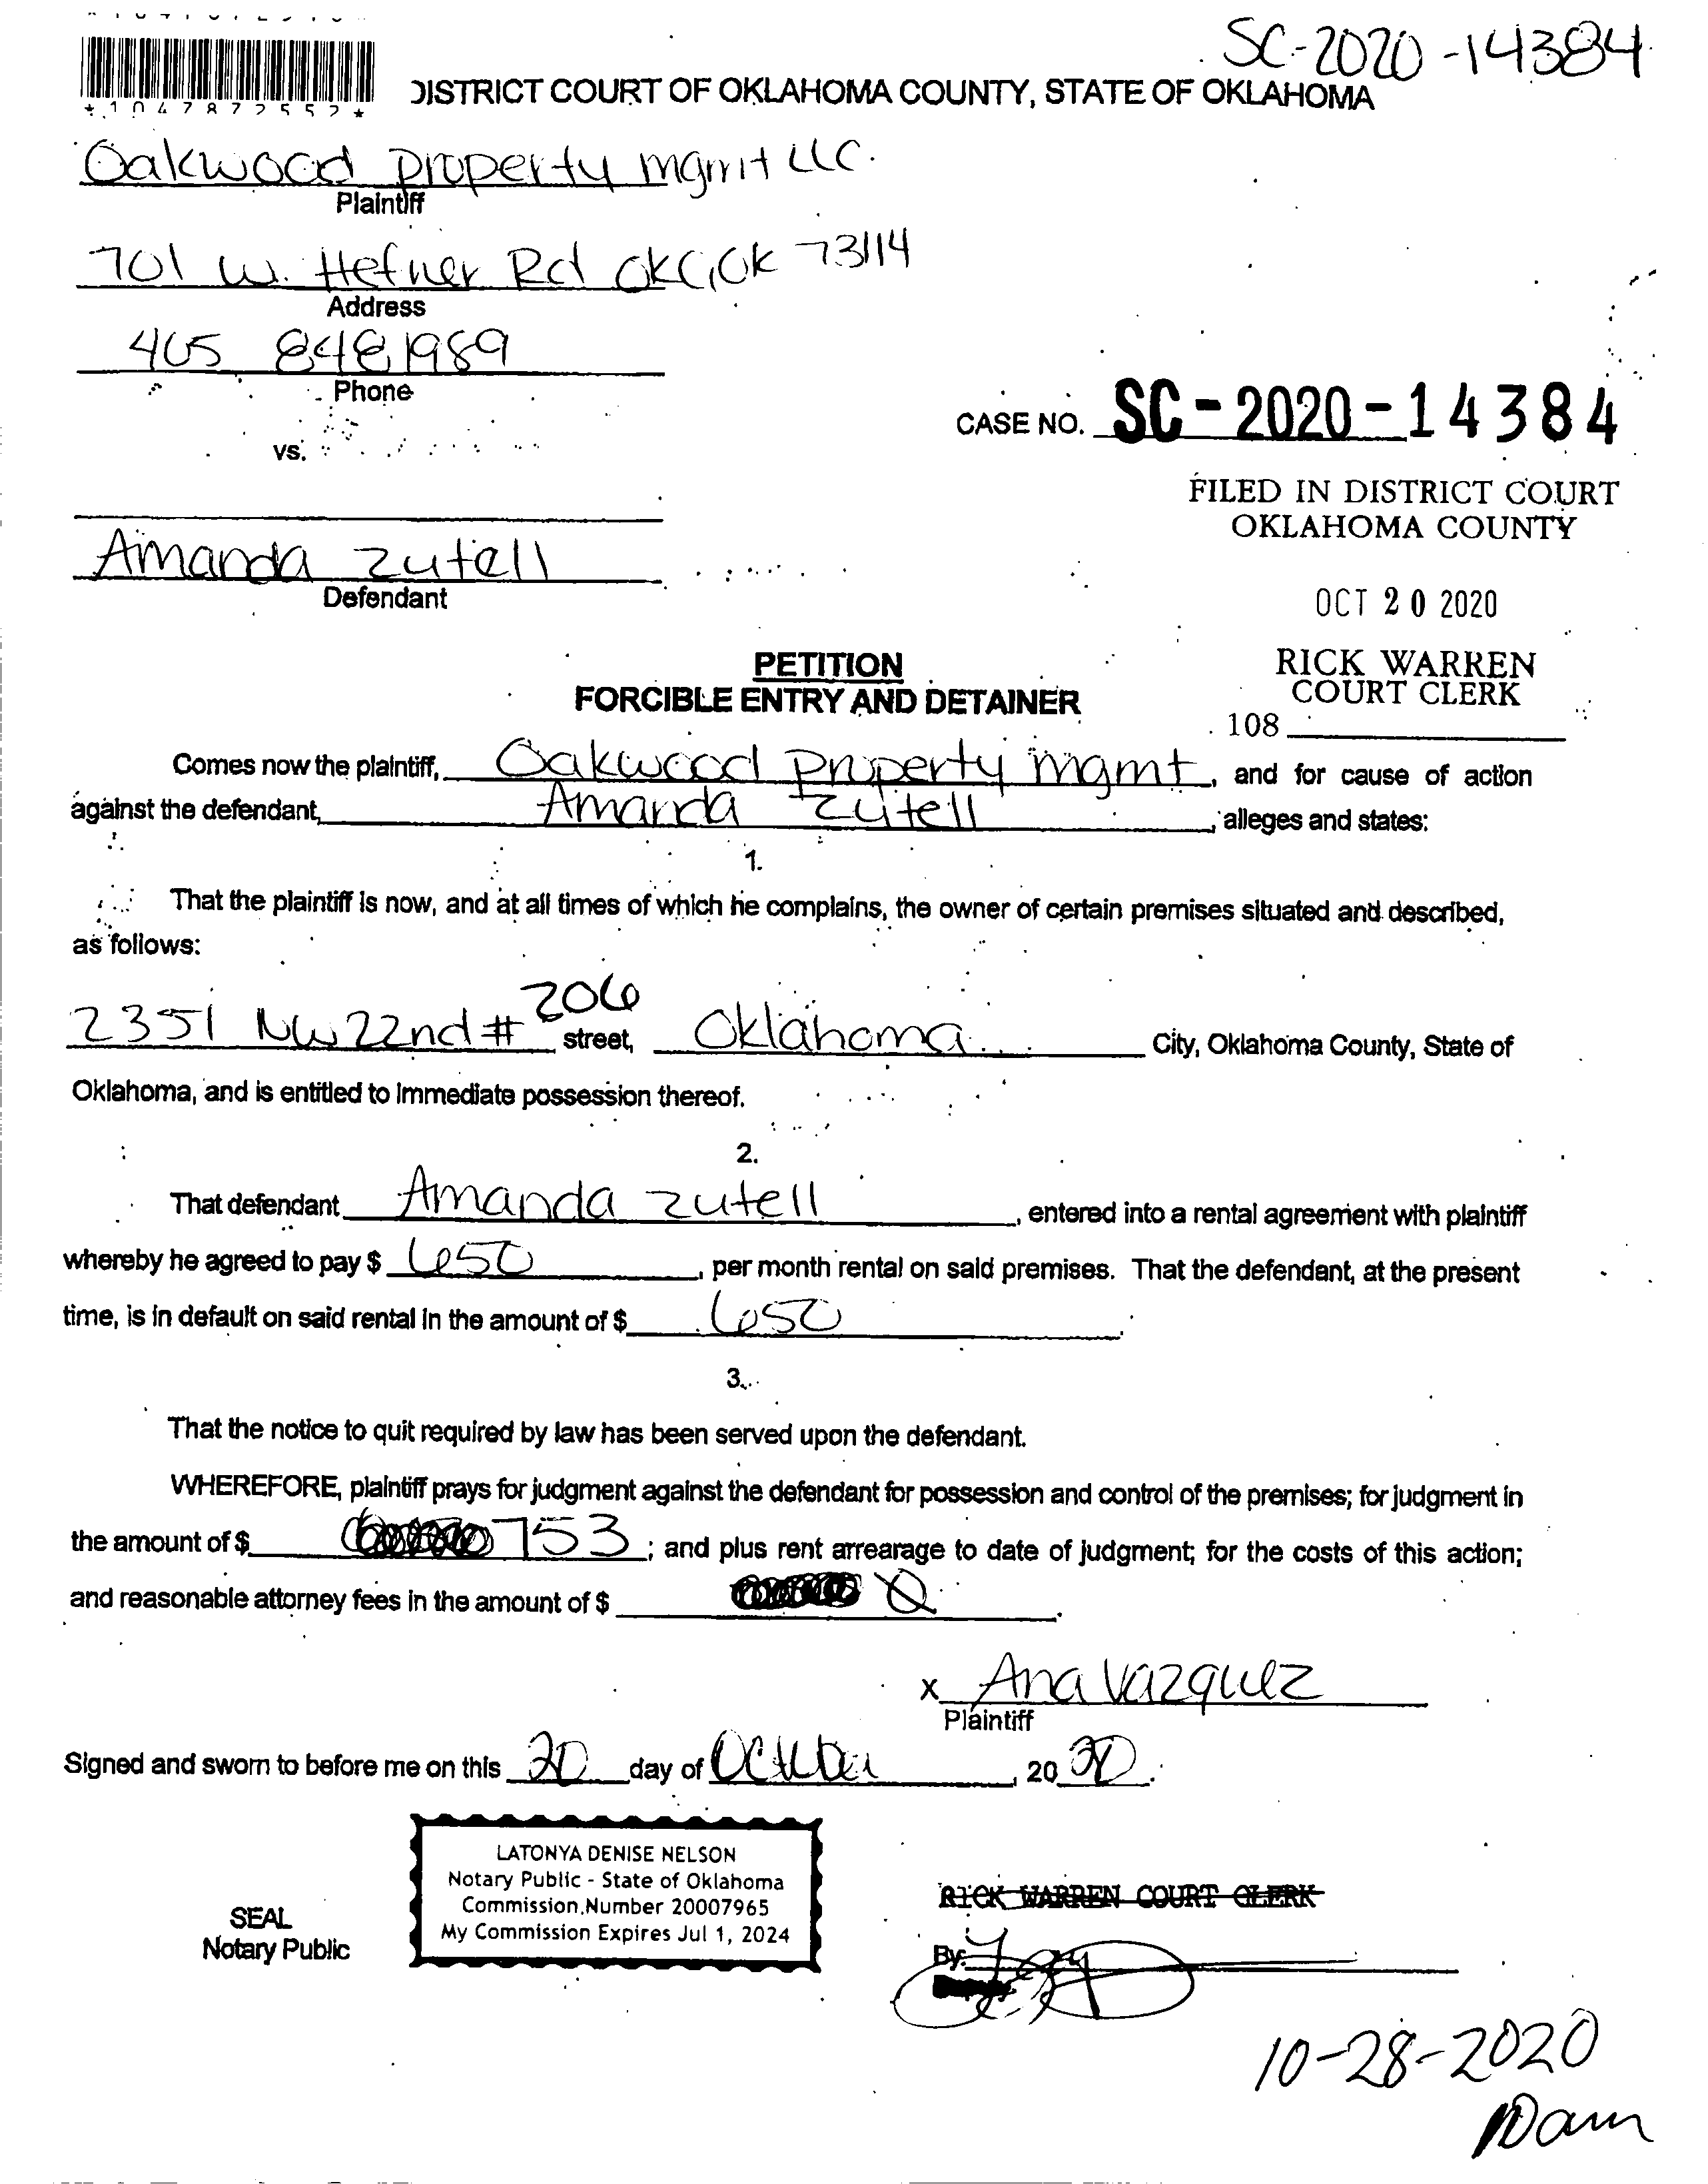 SC-2020-14384
*1047872552*
DISTRICT COURT OF OKLAHOMA COUNTY, STATE OF OKLAHOMA
Oakwood property mgmt LLC.
Plaintiff
701 W. Hefner Rd OKC, OK 73114
Address
405 848 1989
Phone
CASE NO. SC-2020-14384
vs.
FILED IN DISTRICT COURT
OKLAHOMA COUNTY
Amanda Zutell
Defendant
OCT 20 2020
PETITION
FORCIBLE ENTRY AND DETAINER
RICK WARREN
COURT CLERK
108
Comes now the plaintiff, Oakwood property mgmt, and for cause of action
against the defendant, Amanda Zutell, alleges and states:
1.
That the plaintiff is now, and at all times of which he complains, the owner of certain premises situated and described,
as follows:
2351 NW 22nd # 206 street, Oklahoma City, Oklahoma County, State of
Oklahoma, and is entitled to immediate possession thereof.
2.
That defendant Amanda Zutell, entered into a rental agreement with plaintiff
whereby he agreed to pay $ 650, per month rental on said premises. That the defendant, at the present
time, is in default on said rental in the amount of $ 650.
3.
That the notice to quit required by law has been served upon the defendant.
WHEREFORE, plaintiff prays for judgment against the defendant for possession and control of the premises; for judgment in
the amount of $ 753; and plus rent arrearage to date of judgment; for the costs of this action;
and reasonable attorney fees in the amount of $ 0.
x Ana Vazquez
Plaintiff
Signed and sworn to before me on this 20 day of October, 2020.
LATONYA DENISE NELSON
Notary Public - State of Oklahoma
Commission Number 20007965
My Commission Expires Jul 1, 2024
SEAL
Notary Public
RICK WARREN COURT CLERK
By:
10-28-2020